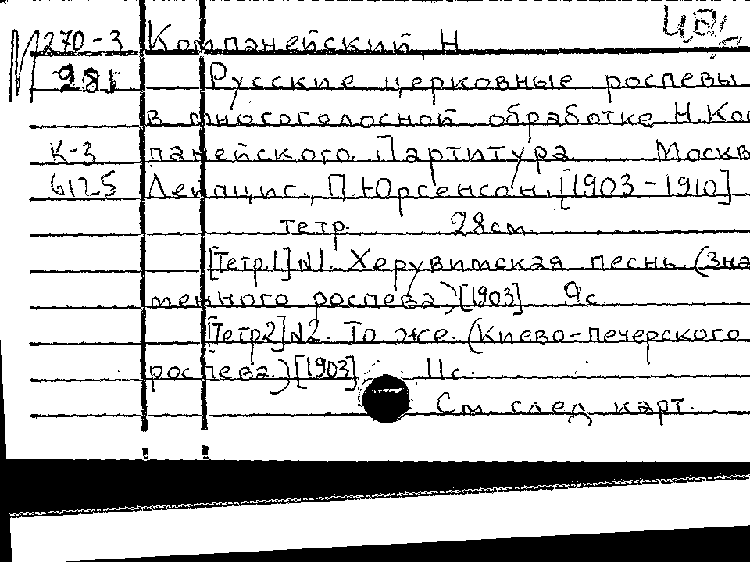 М 270-3 Компанейский, Н
281 Русские церковные роспевы
в многоголосной обработке Н.Ком
К-3 панейского. Партитура Москв
6125 Лейпциг, П.Юргенсон, [1903-1910]
тетр. 28см.
[Тетр.1] №1. Херувимская песнь (Зна
менного роспева) [1903] 9с
[Тетр2] №2. То же. (Киево-Печерского
роспева) [1903] 11с.
См след карт.